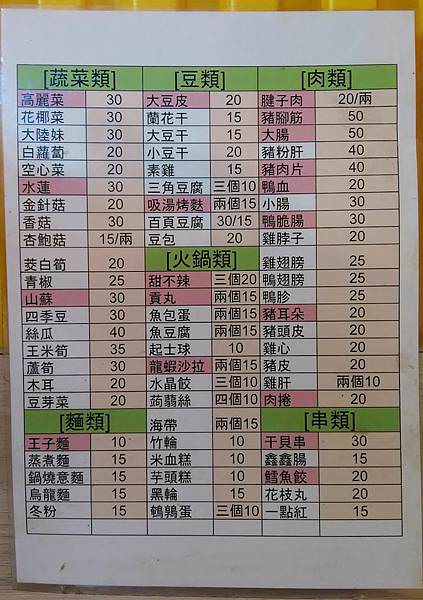 [蔬菜類] [豆類] [肉類]
高麗菜 30 大豆皮 20 腱子肉 20/兩
花椰菜 30 蘭花干 15 豬腳筋 50
大陸妹 30 大豆干 15 大腸 50
白蘿蔔 20 小豆干 20 豬粉肝 40
空心菜 20 素雞 15 豬肉片 40
水蓮 30 三角豆腐 三個10 鴨血 20
金針菇 20 吸湯烤麩 兩個15 小腸 30
香菇 30 百頁豆腐 30/15 鴨脆腸 30
杏鮑菇 15/兩 豆包 20 雞脖子 20
茭白筍 20 [火鍋類] 雞翅膀 25
青椒 25 甜不辣 三個20 鴨翅膀 25
山蘇 30 貢丸 兩個15 鴨胗 25
四季豆 30 魚包蛋 兩個15 豬耳朵 20
絲瓜 40 魚豆腐 兩個15 豬頭皮 20
玉米筍 35 起士球 10 雞心 20
蘆筍 30 龍蝦沙拉 兩個15 豬皮 20
木耳 20 水晶餃 三個10 雞肝 兩個10
豆芽菜 20 蒟蒻絲 四個10 肉捲 20
[麵類] 海帶 兩個15 [串類]
王子麵 10 竹輪 10 干貝串 30
蒸煮麵 15 米血糕 10 鑫鑫腸 15
鍋燒意麵 15 芋頭糕 10 鱈魚餃 20
烏龍麵 15 黑輪 15 花枝丸 20
冬粉 15 鵪鶉蛋 三個10 一點紅 15